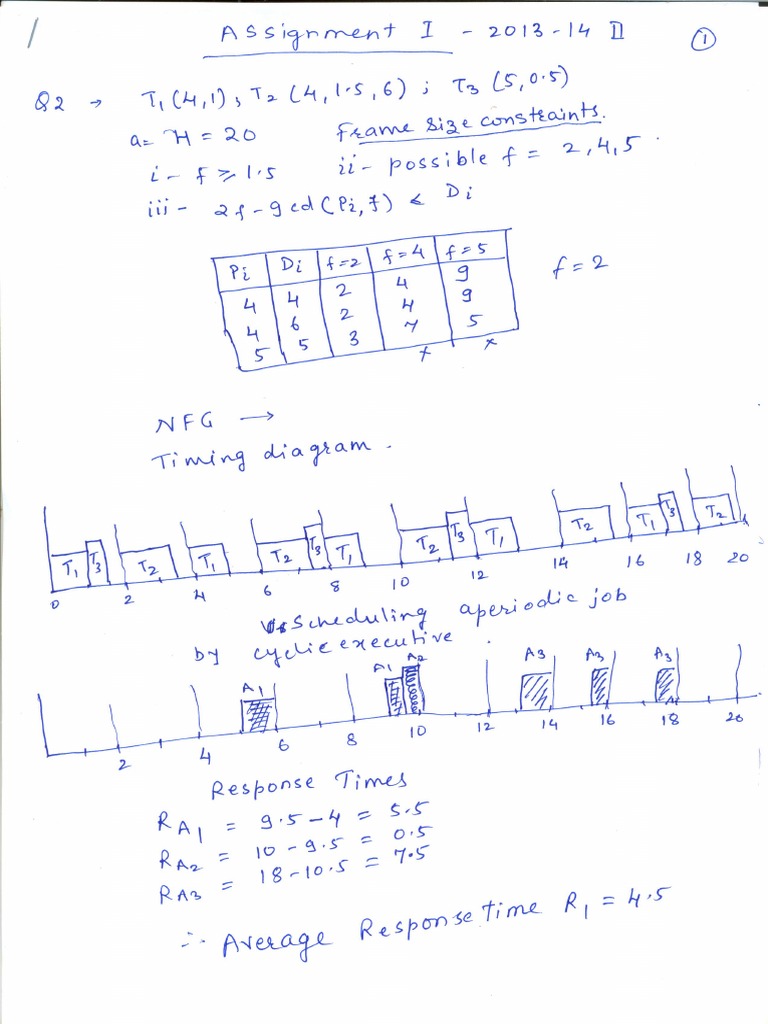 Assignment I - 2013-14 II
1
Q2 → T1 (4,1), T2 (4, 1.5, 6) ; T3 (5, 0.5)
a= H = 20 Frame size constraints.
i- f ≥ 1.5 ii- possible f = 2, 4, 5
iii- 2f - gcd(Pi, f) ≤ Di
Pi Di f=2 f=4 f=5
4 4 2 4 9
4 6 2 4 9
5 5 3 7 5
x x
f = 2
NFG →
Timing diagram.
T1 T3 T2 T1 T2 T3 T1 T2 T3 T1 T2 T1 T3 T2
0 2 4 6 8 10 12 14 16 18 20
Scheduling aperiodic job
by cyclic executive.
A1 A1 A2 A3 A3 A3
2 4 6 8 10 12 14 16 18 20
Response Times
RA1 = 9.5 - 4 = 5.5
RA2 = 10 - 9.5 = 0.5
RA3 = 18 - 10.5 = 7.5
∴ Average Response time R1 = 4.5